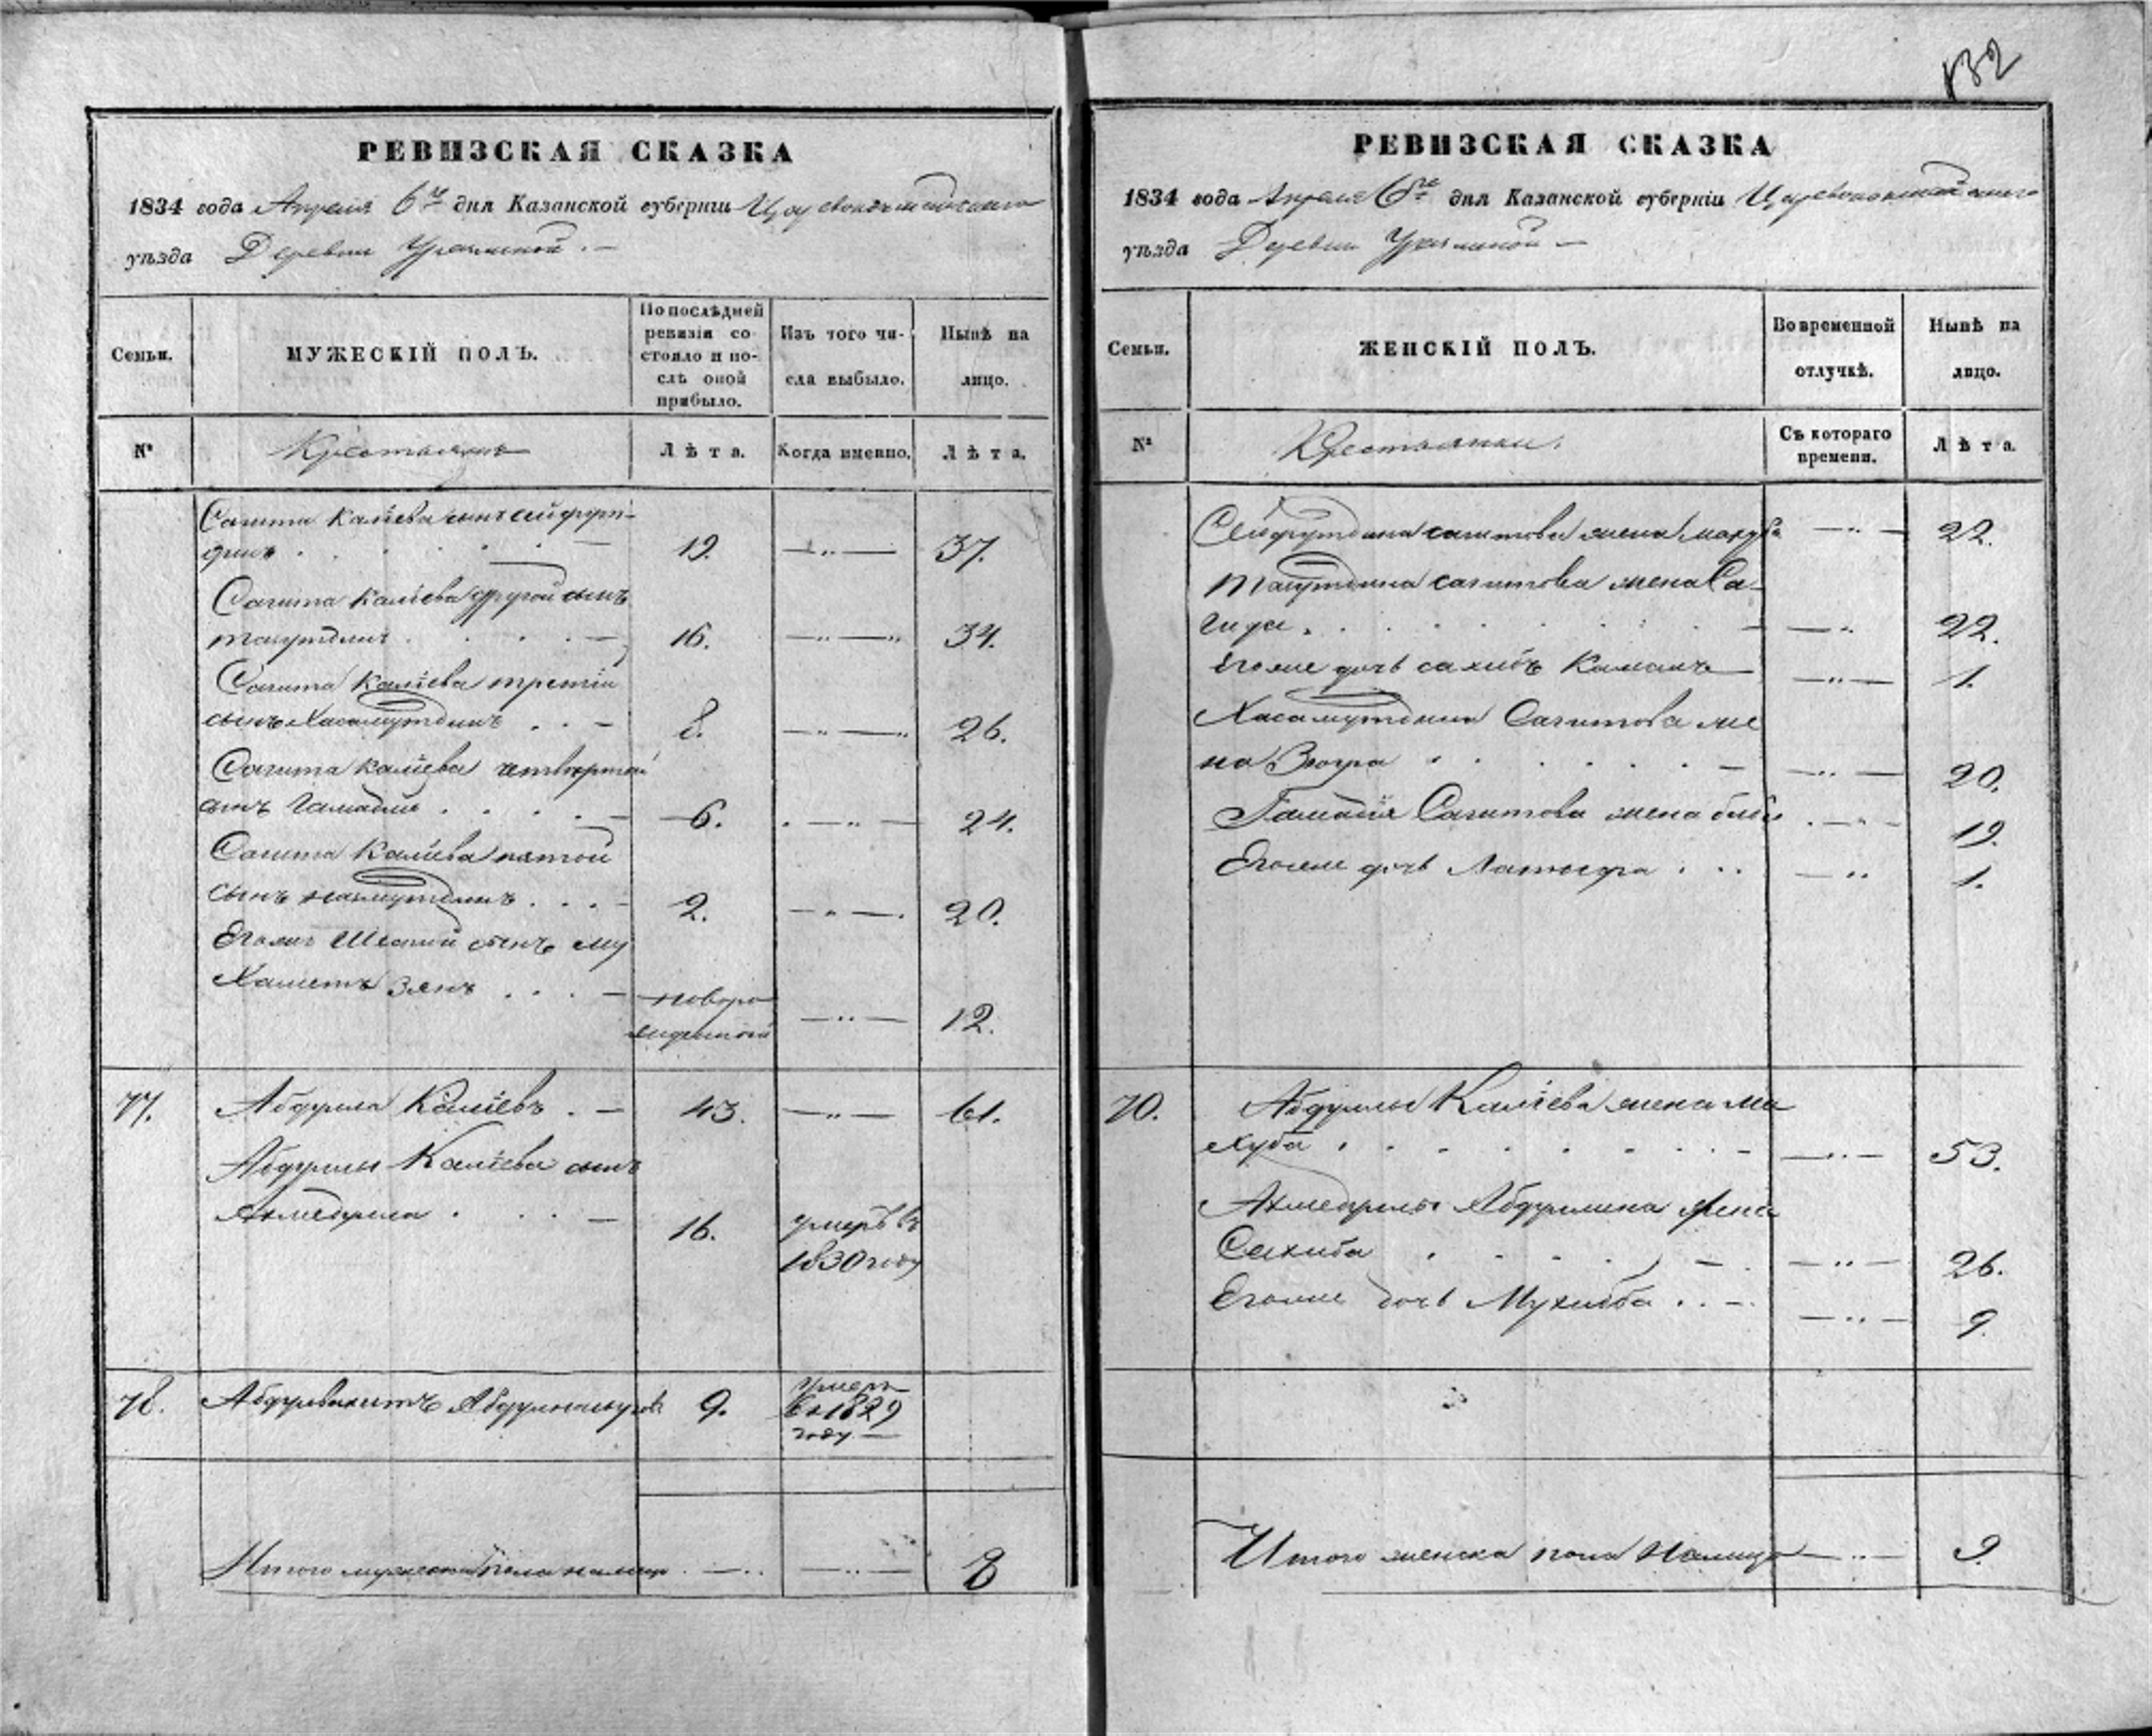 132
РЕВИЗСКАЯ СКАЗКА
1834 года Апреля 6го дня Казанской губерніи Царевококшайскаго
уѣзда Деревни
Семьи.
МУЖЕСКІЙ ПОЛЪ.
По послѣдней ревизіи состояло и послѣ оной прибыло.
Изъ того числа выбыло.
Нынѣ на лицо.
№
Крестьянъ
Лѣта.
Когда именно.
Лѣта.
Сагита Каліева сынъ сейфут-
динъ 19. 37.
Сагита Каліева другой сынъ
тазутдинъ 16. 34.
Сагита Каліева третій
сынъ Хасамутдинъ 8. 26.
Сагита Каліева четвертой
сынъ Гамадій 6. 24.
Сагита Каліева пятой
сынъ 2. 20.
Егоже Шестой сынъ му
хаметъ Зянъ новоро
жденной 12.
77. Абдулла Каліевъ 43. 61.
Абдуллы Каліева сынъ
Ахмедулла 16. умеръ въ
1830 году
78. Абдулвахитъ 9. умеръ
въ 1829
году
Итого мужеска пола налицо 8
РЕВИЗСКАЯ СКАЗКА
1834 года Апреля 6го дня Казанской губерніи Царевококшайскаго
уѣзда Деревни
Семьи.
ЖЕНСКІЙ ПОЛЪ.
Во временной отлучкѣ.
Нынѣ на лицо.
№
Крестьянки.
Съ котораго времени.
Лѣта.
Сейфутдина сагитова жена 22.
тазутдина сагитова жена Са-
гида 22.
Егоже дочь сахибъ Камалъ 1.
Хасамутдина Сагитова же
на Зюгра 20.
Гамадія Сагитова жена биби 19.
Егоже дочь 1.
70. Абдуллы Каліева жена ма
хуба 53.
Ахмедуллы Абдуллина жена
Сахиба 26.
Егоже дочь Мухиба 9.
Итого женска пола Налицо 9.